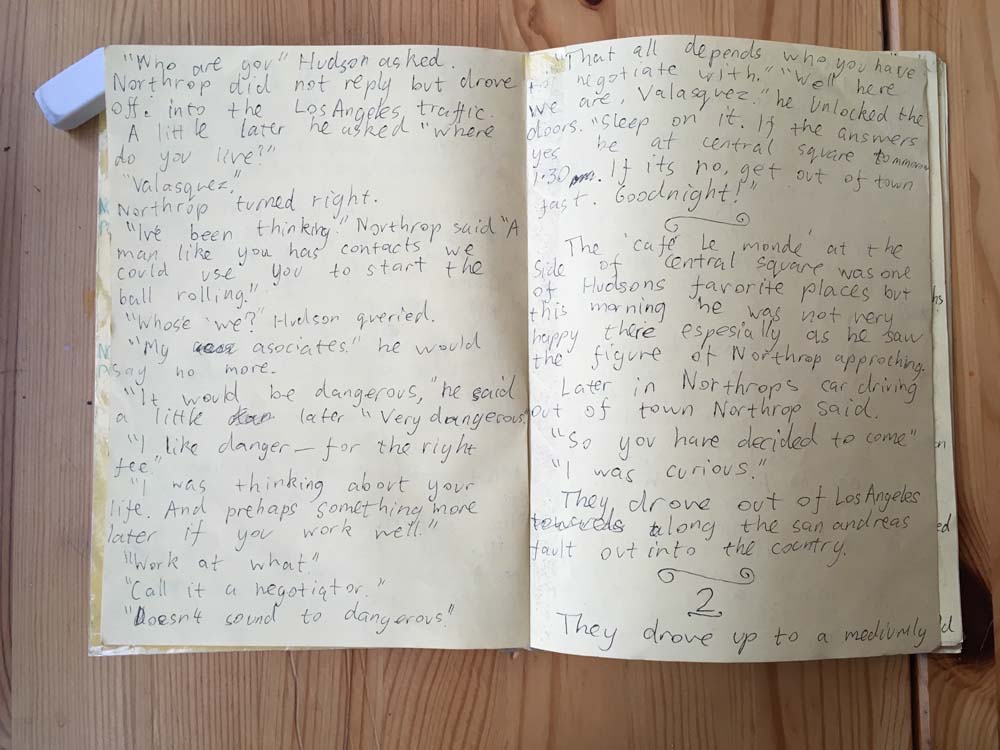 "Who are you" Hudson asked.
Northrop did not reply but drove
off. into the Los Angeles traffic.
A little later he asked "where
do you live?"
"Valasquez."
Northrop turned right.
"Ive been thinking." Northrop said "A
man like you has contacts we
could use you to start the
ball rolling."
"Whose 'we?" Hudson queried.
"My asociates." he would
say no more.
"It would be dangerous," he said
a little later "Very dangerous."
"I like danger – for the right
fee."
"I was thinking about your
life. And prehaps something more
later if you work well."
"Work at what."
"Call it a negotiator."
"Doesnt sound to dangerous."
"That all depends who you have
to negotiate with." "Well here
we are, Valasquez." he unlocked the
doors. "Sleep on it. If the answers
yes be at central square tommorow
1·30pm. If its no, get out of town
fast. Goodnight!"
The 'café Le monde' at the
side of central square was one
of Hudsons favorite places but
this morning he was not very
happy there espesially as he saw
the figure of Northrop approching.
Later in Northrops car driving
out of town Northrop said.
"So you have decided to come"
"I was curious."
They drove out of Los Angeles
towards along the san andreas
fault out into the country.
2
They drove up to a mediumly